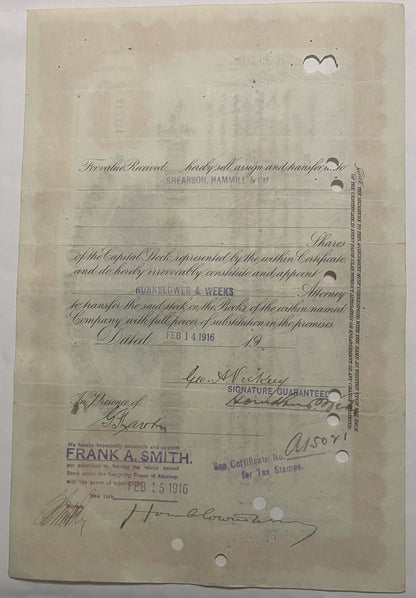 For value Received hereby sell, assign and transfer unto
SHEARSON, HAMMILL & CO
Shares
of the Capital Stock represented by the within Certificate,
and do hereby irrevocably constitute and appoint
HORNBLOWER & WEEKS
Attorney
to transfer the said stock on the Books of the within named
Company with full power of substitution in the premises.
Dated FEB 14 1916 19
Geo. A. Vickery
SIGNATURE GUARANTEED
In Presence of
We hereby irrevocably constitute and appoint
FRANK A. SMITH,
our substitute to transfer the within named
Stock under the foregoing Power of Attorney,
with like power of substitution
FEB 15 1916
New York
See Certificate No. A15021
for Tax Stamps.
Witness
NOTICE: THE SIGNATURE TO THIS ASSIGNMENT MUST CORRESPOND WITH THE NAME AS WRITTEN UPON THE FACE
OF THE CERTIFICATE IN EVERY PARTICULAR WITHOUT ALTERATION OR ENLARGEMENT OR ANY CHANGE WHATEVER